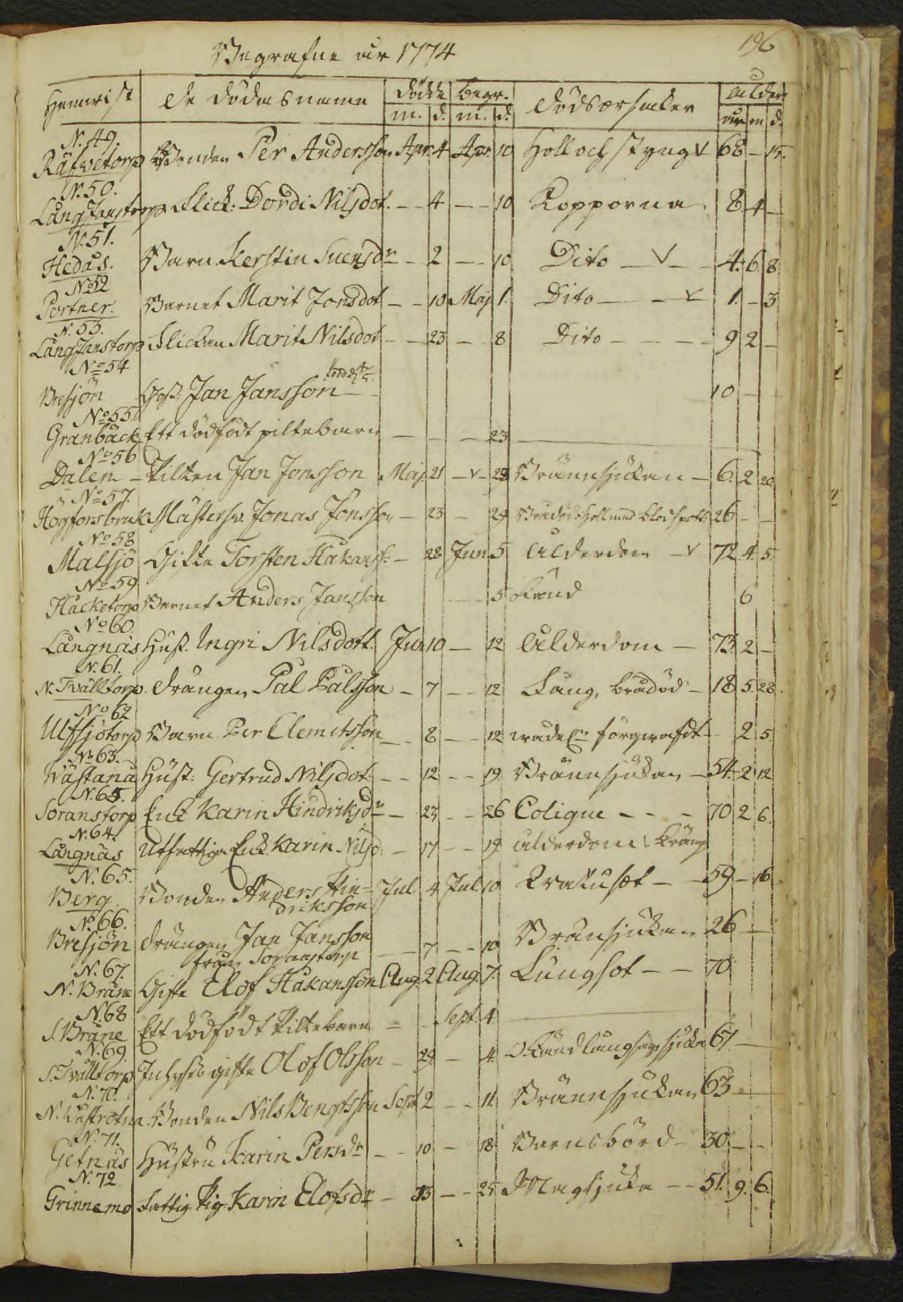 196
Begrafne år 1774
Hemvist De dödas namn dödde begr. Dödsorsaker ålder
m. d. m. d. år m d.
N. 49.
Räfvetorp Bonden Per Andersson Apr. 4 Apr. 10 Håll och styng 68 – 15.
N. 50.
LångJanstorp Flick: Dordi Nilsdot. – – 4 – – 10 Kopporna 8 4 –
N. 51.
Hedås. Barn Kerstin Suensdr – – 2 – – 10 Dito 4. 6 8
No 52
Portner. Barnet Marit Jonsdot – – 10 Maj 1. Dito 1. – 3
N. 53.
LångJanstorp Flickan Marit Nilsdot – – 23 – 8 Dito 9 2 –
No 54
Bresjön Goss. Jan Jansson 10 – –
No 55
Granbäck Ett dödfödt piltebarn – – – 23
No 56
Dalen – Pilten Jan Jonsson Maij 21 – – 29 Brännsjukan – 6. 2 20
No 57.
Högforsbruk Mästersv. Jonas Jonsson – 23 – 29 26 – –
No 58
Malsjö Gifte Torsten Håkanss. – 28 Jun. 5 Ålderdom 72 4. 5.
No 59
Håcketorp Barnet Anders Jansson 5 okänd 6
No 60
Långnäs Hust. Ingri Nilsdott. Jun. 10 – 12 Ålderdom – 73. 2 –
N. 61.
N. Tvälltorp. Drängen Pål Pålsson – 7 – – 12 Lång, brådöd 18 5. 28.
No 62
Ulfsjötorp Barn Per Clemetsson – – 8 – – 12 2 5
No 63.
Västanå Hust: Gertrud Nilsdot. – – 12 – – 19 Brännsjukan – 54. 2 12
N. 65.
Soranstorp Enk. Karin Hindriksdr – – 23 – – 26 Colique – – – 70 2 6.
N. 64.
Långnäs Utfattiga Enk. Karin Nilsd: – 17 – – 19 ålderdom
N. 65.
Berg. Bonden Anders Hin=
driksson Jul 4 Jul 10 59 – 16
No 66.
Bresjön Drängen Jan Jansson
från Soranstorp – – 7 – – 10 Brännsjukan 26 –
N. 67.
N. Bråne Gifte Elof Håkansson Aug 2 Aug. 7 Lungsot – – 70
N. 68
S. Bråne Ett dödfödt Piltebarn – Sept. 4
N. 69
S. Tvälltorp Inhyses gifte Olof Olsson – 29 – 4 67. –
N. 70.
Bonden Nils Bengtsson Sept 2 – – 11 Brännsjukan 63 –
N. 71.
Getnäs Hustru Karin Persdr – – 10 – 18 Barnsbörd – 30 – –
N. 72
Grinnemo Fattig Pig Karin Elofsdr – 13 – – 25 Magsjuka – – 51. 9. 6.